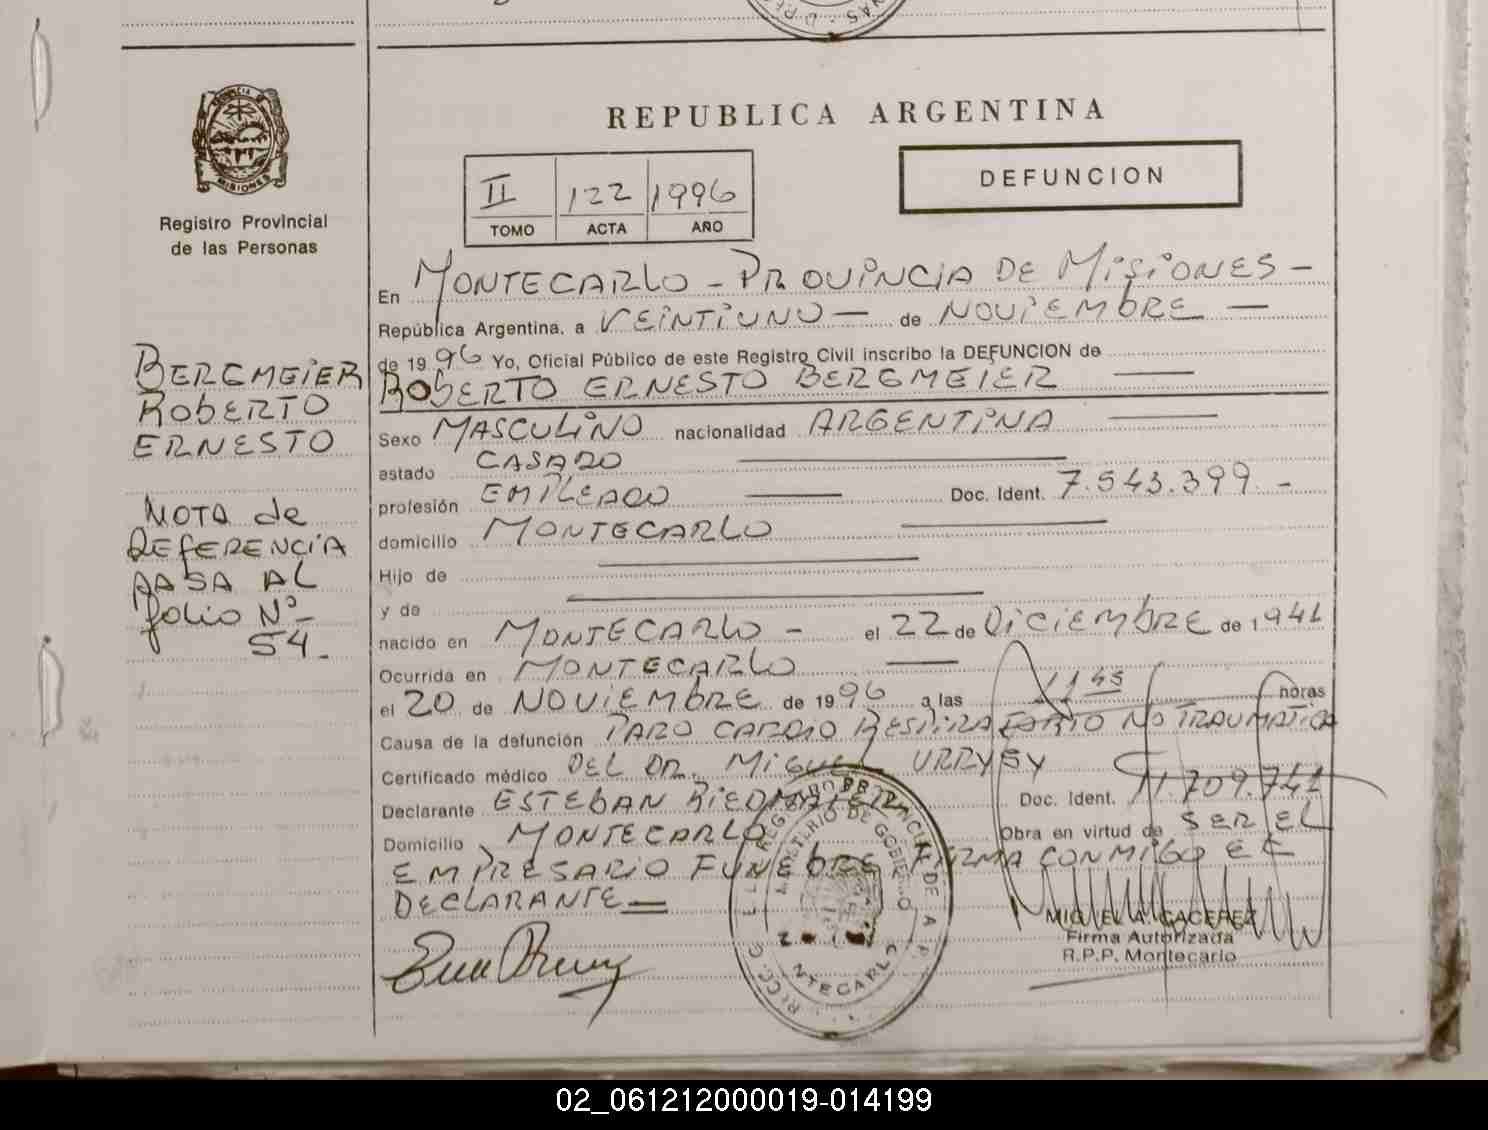 REPUBLICA ARGENTINA
DEFUNCION
II 122 1996
TOMO ACTA AÑO
PROVINCIA DE
MISIONES
Registro Provincial
de las Personas
BERGMEIER
ROBERTO
ERNESTO
NOTA de
REFERENCIA
PASA AL
folio Nº
54.
En MONTECARLO - PROVINCIA DE MISIONES -
República Argentina, a VEINTIUNO — de NOVIEMBRE —
de 1996 Yo, Oficial Público de este Registro Civil inscribo la DEFUNCION de
ROBERTO ERNESTO BERGMEIER —
Sexo MASCULINO nacionalidad ARGENTINA —
estado CASADO —
profesión EMPLEADO — Doc. Ident. 7.543.399 -
domicilio MONTECARLO —
Hijo de —
y de —
nacido en MONTECARLO - el 22 de DICIEMBRE de 1941
Ocurrida en MONTECARLO —
el 20 de NOVIEMBRE de 1996 a las 1145 horas
Causa de la defunción PARO CARDIO RESPIRATORIO NO TRAUMATICA
Certificado médico DEL DR. MIGUEL
Declarante ESTEBAN RIEDMAIER Doc. Ident. 11.709.741
Domicilio MONTECARLO Obra en virtud de SER EL
EMPRESARIO FUNEBRE FIRMA CONMIGO EL
DECLARANTE —
MIGUEL A. CACEREZ
Firma Autorizada
R.P.P. Montecarlo
MINISTERIO DE GOBIERNO
02_061212000019-014199